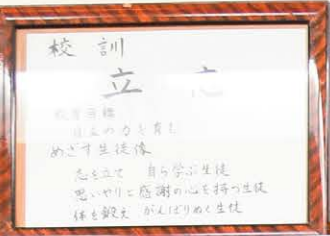 校訓
立
教育目標
自立の力を育む
めざす生徒像
志を立て 自ら学ぶ生徒
思いやりと感謝の心を持つ生徒
体を鍛え がんばりぬく生徒